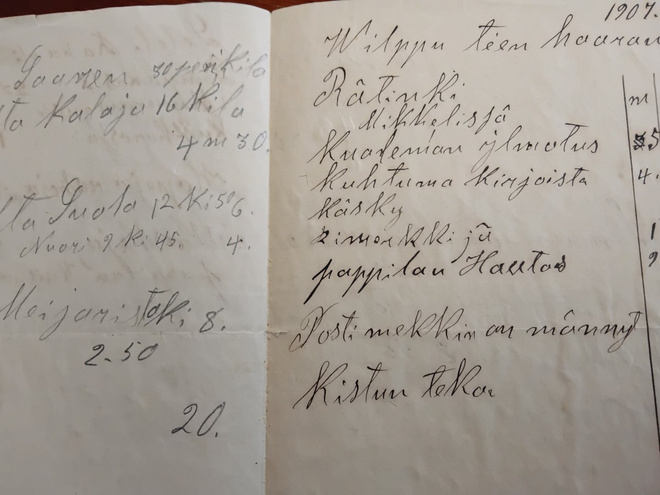 Saaren 30 peni kila
ta Kaloja 16 Kila
4 m 30.
ta Suola 12 Ki 50 6.
Nuori 9 Ki 45. 4.
Meijaristoki 8.
2-50
20.
1907.
Wilppu tien haaran
Rätinki
m
Mikkelissä
Kuoleman ylmotus 5
Kuhtuma Kirjoista 4.
Käsky
zimerkki jä 1
pappilan Hautos 9
Postimekkin on männyt
Kistun teko